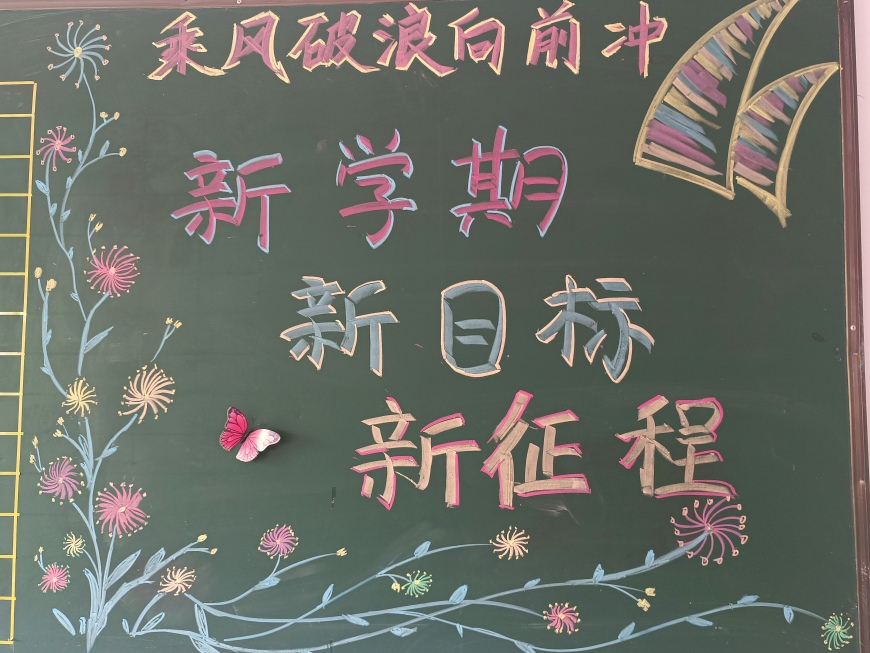 乘风破浪向前冲
新学期
新目标
新征程